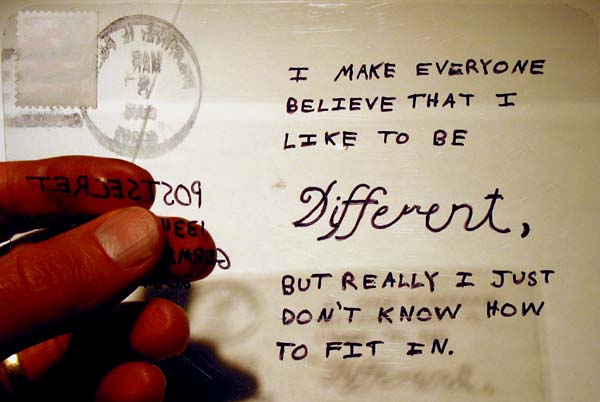 I MAKE EVERYONE
BELIEVE THAT I
LIKE TO BE
Different,
BUT REALLY I JUST
DON'T KNOW HOW
TO FIT IN.
POSTSECRET
1334
GERMA
MAR